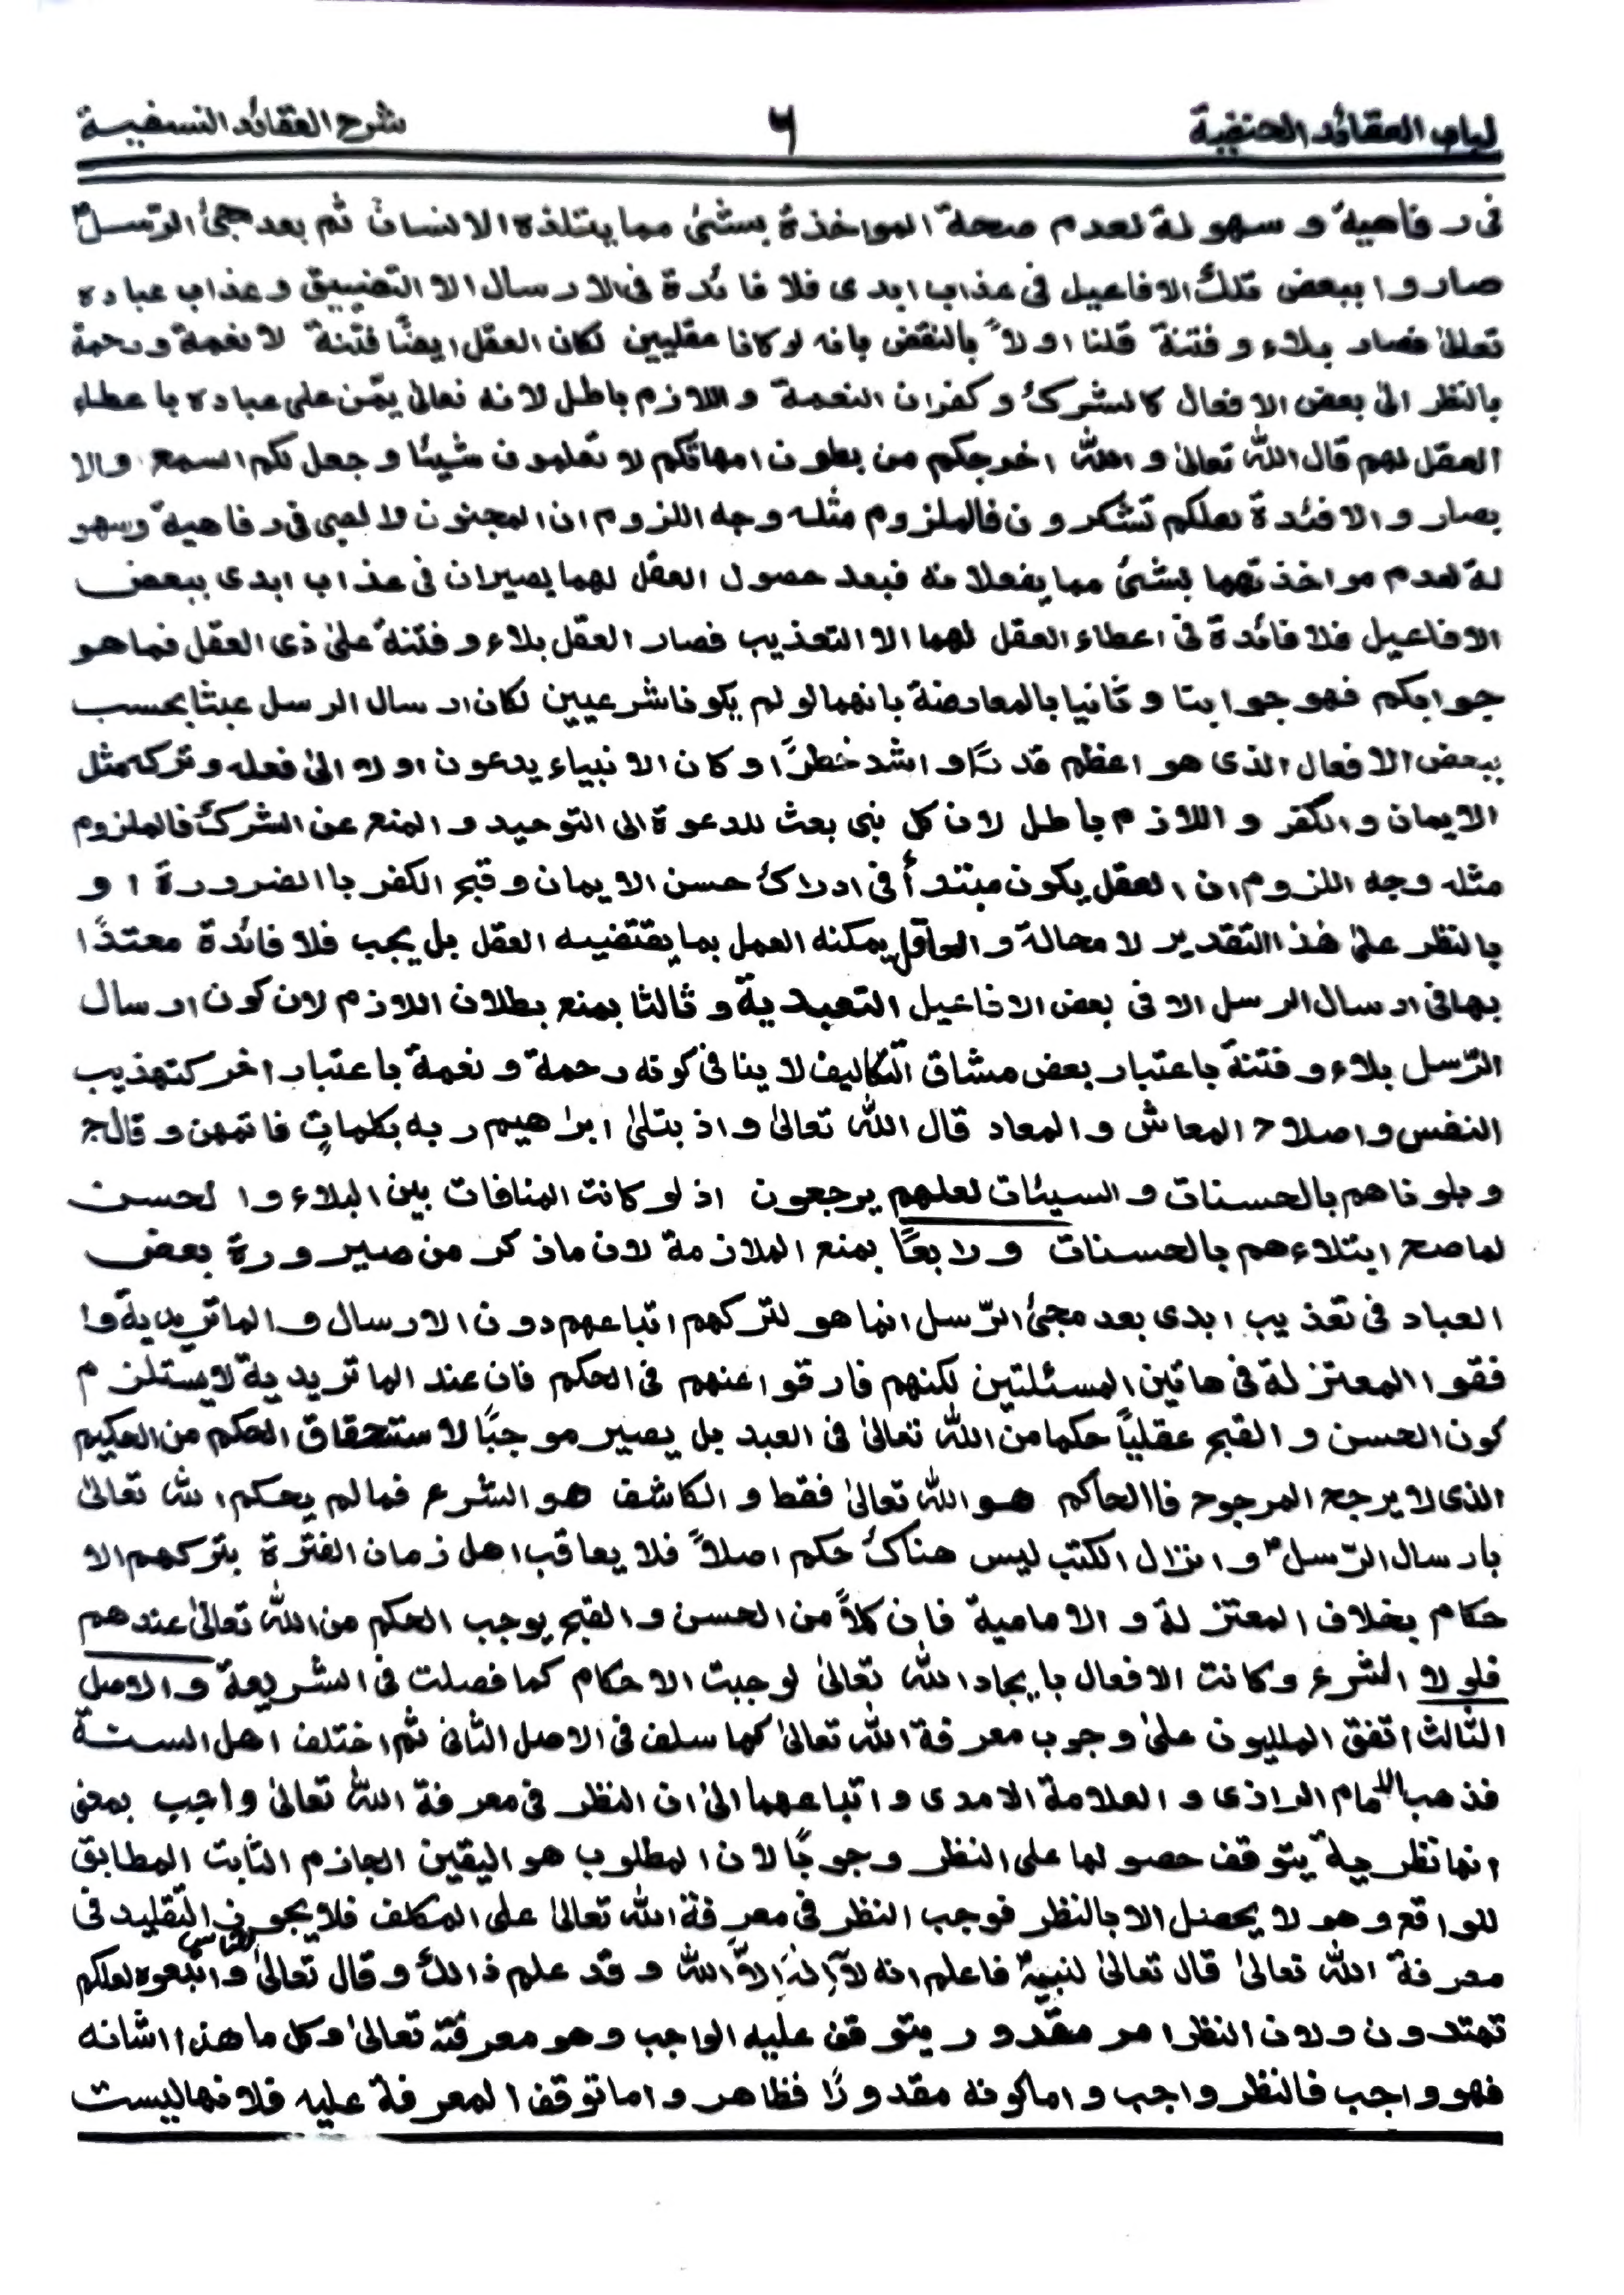 لباب العقائد الحنفية ٦ شرح العقائد النسفية
فی رفاهية و سهولة لعدم صحة المواخذة بشئ مما يتلذذه الانسان ثم بعد مجئ الرّسل
صاروا ببعض تلك الافاعيل فی عذاب ابدی فلا فائدة فی الارسال الا التضييق و عذاب عباده
تعالیٰ فصار بلاء و فتنة قلنا اولاً بالنقض بانه لو كانا عقليين لكان العقل ايضًا فتنة لا نعمة و رحمة
بالنظر الیٰ بعض الافعال كالشرك و كفران النعمة و اللازم باطل لانه تعالیٰ يمّن علی عباده باعطاء
العقل لهم قال اللّٰه تعالیٰ و اللّٰه اخرجكم من بطون امهاتكم لا تعلمون شيئا و جعل لكم السمع والا
بصار و الافئدة لعلكم تشكرون فالملزوم مثله وجه اللزوم ان المجنون و الصبی فی رفاهية وسهو
لة لعدم مواخذتهما بشئ مما يفعلانه فبعد حصول العقل لهما يصيران فی عذاب ابدی ببعض
الافاعيل فلا فائدة فی اعطاء العقل لهما الا التعذيب فصار العقل بلاء و فتنة علیٰ ذی العقل فما هو
جوابكم فهو جوابنا و ثانيا بالمعارضة بانهما لو لم يكونا شرعيين لكان ارسال الرسل عبثا بحسب
ببعض الافعال الذی هو اعظم قدرًا و اشد خطرًا و كان الانبياء يدعون اولا الیٰ فعله و تركه مثل
الايمان و الكفر و اللازم باطل لان كل نبی بعث للدعوة الی التوحيد و المنع عن الشرك فالملزوم
مثله وجه اللزوم ان العقل يكون مبتدأ فی ادراك حسن الايمان و قبح الكفر با الضرورة او
بالنظر علیٰ هٰذا التقدير لا محالة و العاقل يمكنه العمل بما يقتضيه العقل بل يجب فلا فائدة معتدًا
بها فی ارسال الرسل الا فی بعض الافاعيل التعبدية و ثالثا بمنع بطلان اللازم لان كون ارسال
الرّسل بلاء و فتنة باعتبار بعض مشاق التكاليف لا ينافی كونه رحمة و نعمة باعتبار اخر كتهذيب
النفس و اصلاح المعاش و المعاد قال اللّٰه تعالیٰ و اذ بتلیٰ ابرٰهيم ربه بكلماتٍ فاتمهن و قال ج
و بلوناهم بالحسنات و السيئات لعلهم يرجعون اذ لو كانت المنافات بين البلاء و ا لحسن
لما صح ابتلاءهم بالحسنات و رابعًا بمنع الملازمة لان ما ذكر من صيرورة بعض
العباد فی تعذيب ابدی بعد مجئ الرّسل انما هو لتركهم اتباعهم دون الارسال و الماتريدية وا
فقوا المعتزلة فی هاتين المسئلتين لكنهم فارقوا عنهم فی الحكم فان عند الماتريدية لا يستلزم
كون الحسن و القبح عقليًا حكما من اللّٰه تعالیٰ فی العبد بل يصير موجبًا لاستحقاق الحكم من الحكيم
الذی لا يرجح المرجوح فاالحاكم هو اللّٰه تعالیٰ فقط و الكاشف هو الشرع فما لم يحكم اللّٰه تعالیٰ
بارسال الرّسل و انزال الكتب ليس هناك حكم اصلاً فلا يعاقب اهل زمان الفترة بتركهم الا
حكام بخلاف المعتزلة و الامامية فان كلاً من الحسن و القبح يوجب الحكم من اللّٰه تعالیٰ عندهم
فلولا الشرع و كانت الافعال بايجاد اللّٰه تعالیٰ لوجبت الاحكام كما فصلت فی الشريعة و الاصل
الثالث اتفق المليون علیٰ وجوب معرفة اللّٰه تعالیٰ كما سلف فی الاصل الثانی ثم اختلف اهل السنة
فذهب الامام الرازی و العلامة الامدی و اتباعهما الیٰ ان النظر فی معرفة اللّٰه تعالیٰ واجب بمعنی
انها نظرية يتوقف حصولها علی النظر وجوبًا لان المطلوب هو اليقين الجازم الثابت المطابق
للواقع و هو لا يحصل الا بالنظر فوجب النظر فی معرفة اللّٰه تعالیٰ علی المكلف فلا يجوز التقليد فی
معرفة اللّٰه تعالیٰ قال تعالیٰ لنبيه فاعلم انه لآ اِلٰهَ اِلاّ اللّٰه و قد علم ذالك و قال تعالیٰ و اتبعوه لعلكم
تهتدون و لان النظر امر مقدور يتوقف عليه الواجب و هو معرفته تعالیٰ و كل ما هذا اشانه
فهو واجب فالنظر واجب و اما كونه مقدورًا فظاهر و اما توقف المعرفة عليه فلانها ليست